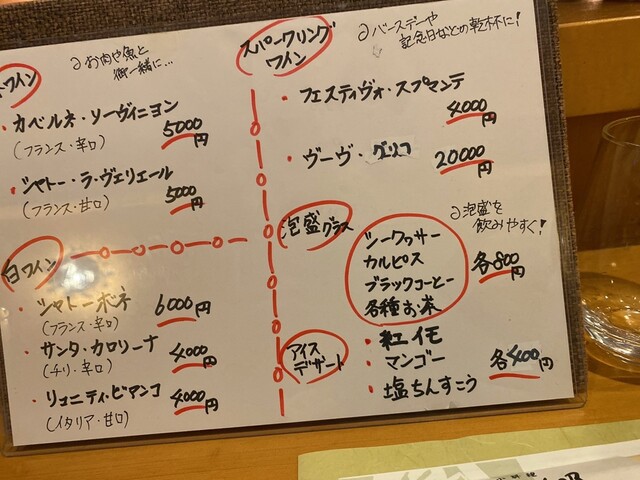 ワイン
お肉や魚と
御一緒に…
・カベルネ・ソーヴィニヨン
(フランス・辛口)
5000円
・シャトー・ラ・ヴェリエール
(フランス・甘口)
5000円
白ワイン
・シャトーボネ
6000円
(フランス・辛口)
・サンタ・カロリーナ
4000円
(チリ・辛口)
・リュニティ・ビアンコ
4000円
(イタリア・甘口)
スパークリング
ワイン
バースデーや
記念日などの乾杯に!
・フェスティヴォ・スプマンテ
4000円
・ヴーヴ・グリコ
20000円
泡盛グラス
泡盛を
飲みやすく!
シークヮサー
カルピス
ブラックコーヒー
各種お茶
各800円
アイス
デザート
・紅イモ
・マンゴー
・塩ちんすこう
各400円